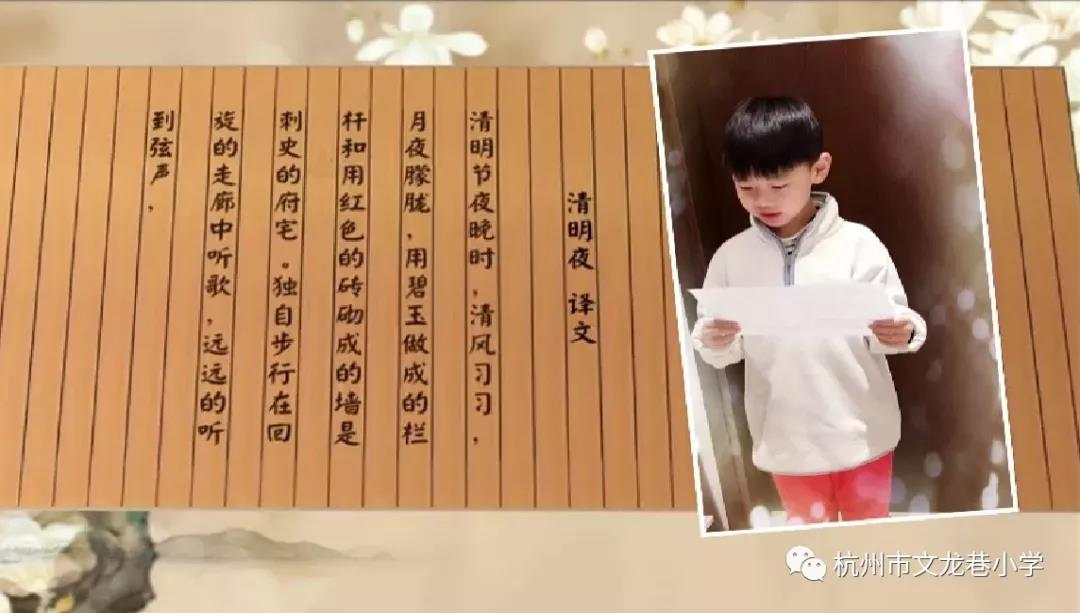 清明夜 译文
清明节夜晚时，清风习习，
月夜朦胧，用碧玉做成的栏
杆和用红色的砖砌成的墙是
刺史的府宅。独自步行在回
旋的走廊中听歌，远远的听
到弦声，
杭州市文龙巷小学